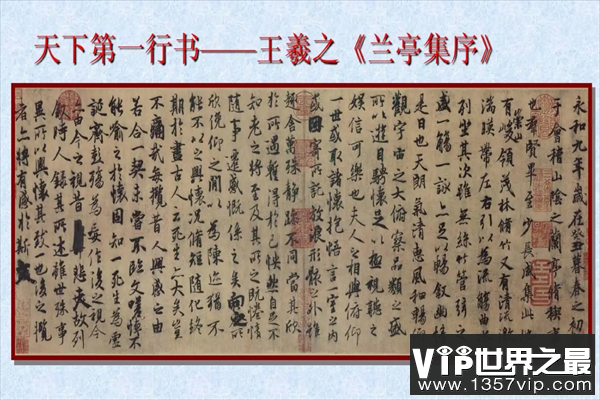 天下第一行书——王羲之《兰亭集序》
永和九年歲在癸丑暮春之初
于會稽山陰之蘭亭脩禊事
也羣賢畢至少長咸集此地
有崇山峻領茂林脩竹又有清流激
湍暎帶左右引以為流觴曲
列坐其次雖無絲竹管絃之
盛一觴一詠亦足以暢敘幽情
是日也天朗氣清惠風和暢仰
觀宇宙之大俯察品類之盛
所以遊目騁懷足以極視聽之
娛信可樂也夫人之相與俯仰
一世或取諸懷抱悟言一室之內
或因寄所託放浪形骸之外雖
趣舍萬殊靜躁不同當其欣
於所遇暫得於己怏然自足不
知老之將至及其所之既惓情
隨事遷感慨係之矣向之所
欣俛仰之間以為陳迹猶不
能不以之興懷況脩短隨化終
期於盡古人云死生亦大矣豈
不痛哉每攬昔人興感之由
若合一契未嘗不臨文嗟悼不
能喻之於懷固知一死生為虛
誕齊彭殤為妄作後之視今
亦由今之視昔悲夫故列
敘時人錄其所述雖世殊事
異所以興懷其致一也後之攬
者亦將有感於斯文
VIP世界之最
www.1357vip.com